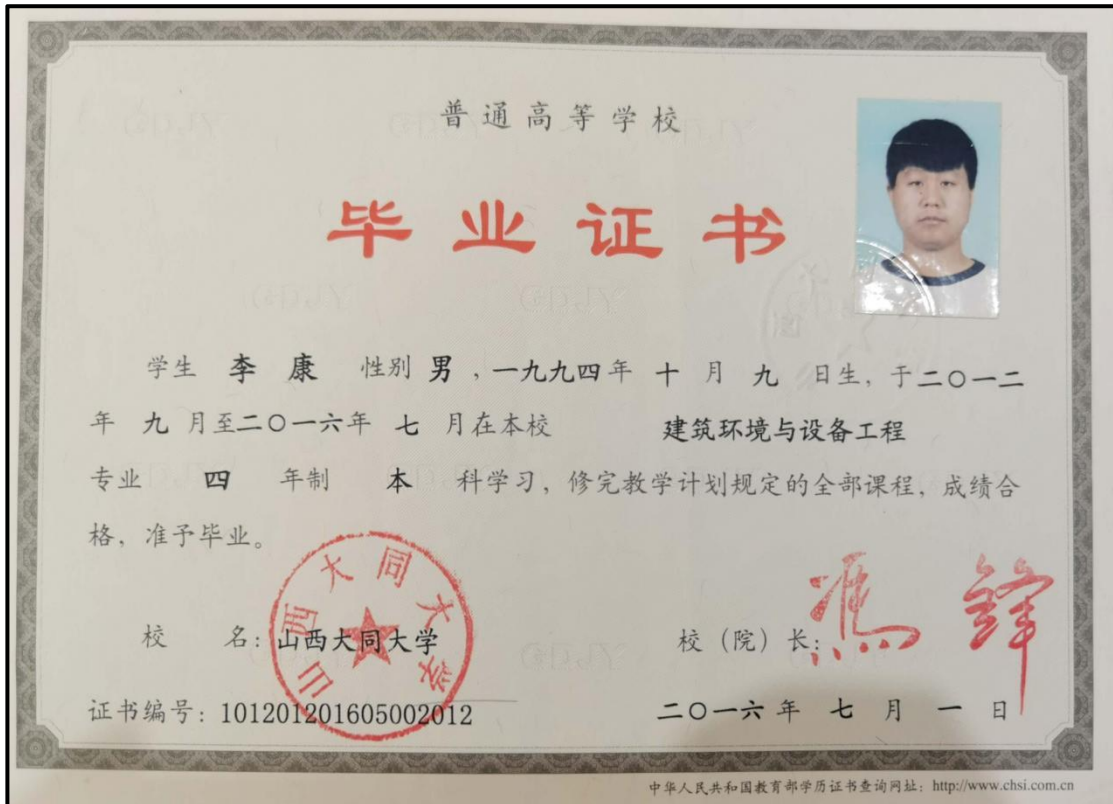 普通高等学校
毕业证书
学生 李 康 性别 男 ,一九九四年 十 月 九 日生, 于二〇一二
年 九 月至二〇一六年 七 月在本校 建筑环境与设备工程
专业 四 年制 本 科学习, 修完教学计划规定的全部课程, 成绩合
格, 准予毕业。
山西大同大学
校 名: 山西大同大学 校(院)长: 冯锋
证书编号: 101201201605002012 二〇一六年 七 月 一 日
中华人民共和国教育部学历证书查询网址: http://www.chsi.com.cn